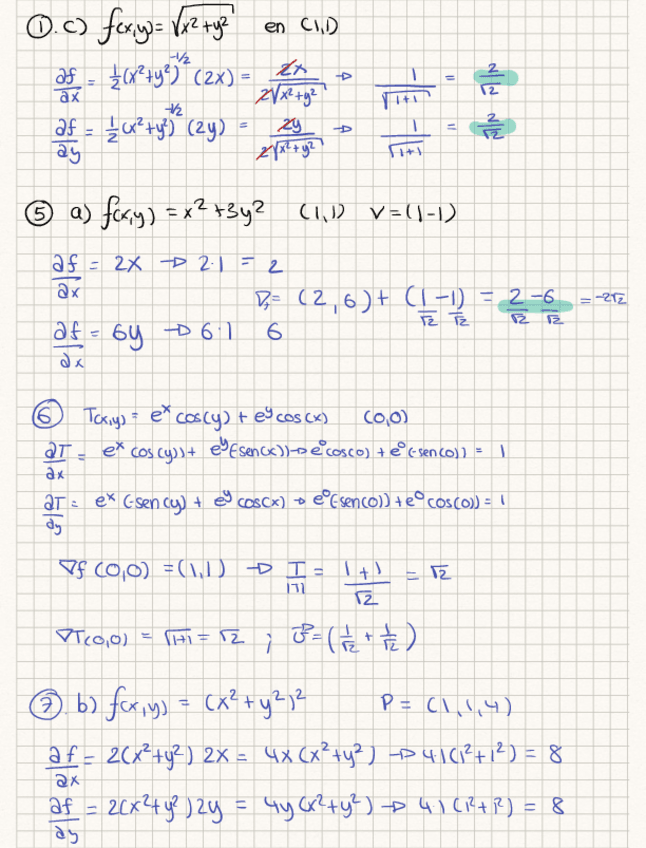 ① c) f(x,y) = √x²+y² en (1,1)
∂f/∂x = 1/2 (x²+y²)^-1/2 (2x) = 2x / 2√x²+y² → 1/√1+1 = 2/√2
∂f/∂y = 1/2 (x²+y²)^-1/2 (2y) = 2y / 2√x²+y² → 1/√1+1 = 2/√2
⑤ a) f(x,y) = x²+3y² (1,1) v=(1-1)
∂f/∂x = 2x → 2·1 = 2
D⃗ᵥ= (2,6) + (1/√2 -1/√2) = 2/√2 - 6/√2 = -2√2
∂f/∂x = 6y → 6·1 6
⑥ T(x,y) = eˣ cos(y) + eʸ cos(x) (0,0)
∂T/∂x = eˣ cos(y)) + eʸ(-sen(x)) → e⁰cos(0) + e⁰(-sen(0)) = 1
∂T/∂y = eˣ (-sen(y) + eʸ cos(x) → e⁰(-sen(0)) + e⁰ cos(0)) = 1
∇f (0,0) = (1,1) → T/|T| = 1+1/√2 = √2
∇T(0,0) = √1+1 = √2 ; v⃗ = (1/√2 + 1/√2)
⑦. b) f(x,y) = (x²+y²)² P = (1,1,4)
∂f/∂x = 2(x²+y²) 2x = 4x(x²+y²) → 4·1(1²+1²) = 8
∂f/∂y = 2(x²+y²)2y = 4y(x²+y²) → 4·1(1²+1²) = 8